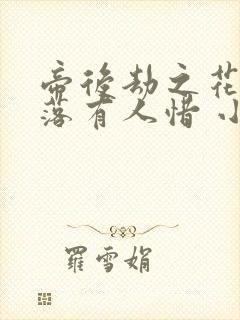 帝後劫之花
落有人惜 小
羅雪娟